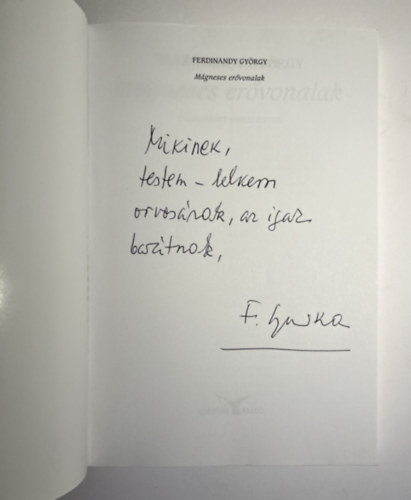 FERDINANDY GYÖRGY
Mágneses erővonalak
Mikinek,
testem – lelkem
orvosának, az igaz
barátnak,
F. Gyurka